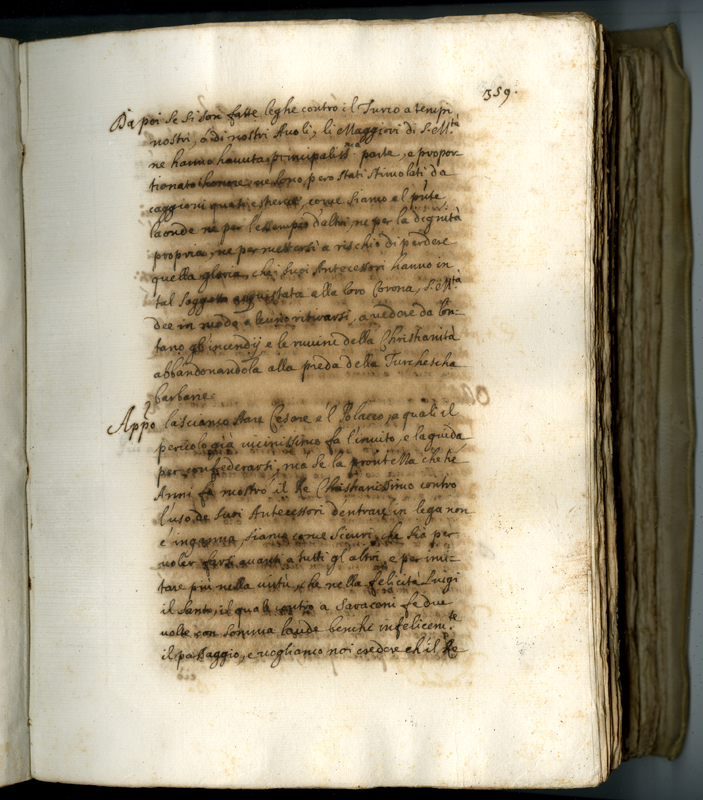 359.
Da poi se si son fatte leghe contro il Turco a tempi
nostri, ò di nostri Avoli, li Maggiori di S. M.tà
ne hanno havuta principaliss.ma parte, e propor-
tionato honore, ne sono però stati stimolati da
caggioni questi esherne, come siamo al p̃nte
laonde ne per l'essempio d'altri, ne per la dignità
propria, ne per mettersi a rischio di perdere
quella gloria, che i suoi Antecessori hanno in
tal soggetto acquistata alla loro Corona, S. M.tà
dee in modo alcuno ritirarsi, a vedere da lon-
tano gl'incendij e le ruuine della Christianità
abbandonandola alla preda della Turchescha
barbarie.
App.o lasciamo stare Cesare e'l Polacco, a quali il
pericolo già vicinissimo fa l'invito, e la guida
per confederarsi, ma se la prontezza che tre
Anni fa mostrò il Re Christianissimo contro
l'uso de suoi Antecessori d'entrare in lega non
c'inganna, siamo come sicuri, che sia per
voler farsi avanti a tutti gl'altri, e per imi-
tare più nella virtù, che nella felicità Luigi
il Santo, il quale contro a Saraceni fe due
volte con somma laude benche infelicem.te
il passaggio, e vogliamo noi credere ch'il Re